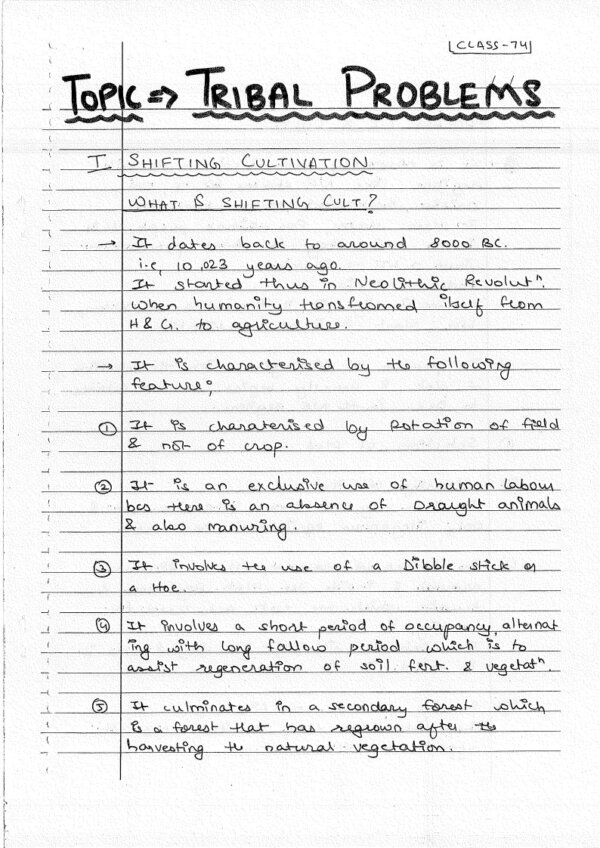 CLASS-74
TOPIC => TRIBAL PROBLEMS
I. SHIFTING CULTIVATION
WHAT IS SHIFTING CULT.?
→ It dates back to around 8000 BC.
i.e, 10,023 years ago.
It started thus in Neolithic Revolutⁿ.
when humanity transfromed itself from
H & G. to agriculture.
→ It is characterised by the following
feature;
① It is charaterised by Rotation of field
& not of crop.
② It is an exclusive use of human labour
bcs there is an absence of Draught animals
& also manuring.
③ It involves the use of a Dibble stick or
a Hoe.
④ It involves a short period of occupancy, alternat
ing with long fallow period which is to
assist regeneration of soil. fert. & vegetatⁿ.
⑤ It culminates in a secondary forest which
is a forest that has regrown after the
harvesting the natural vegetation.